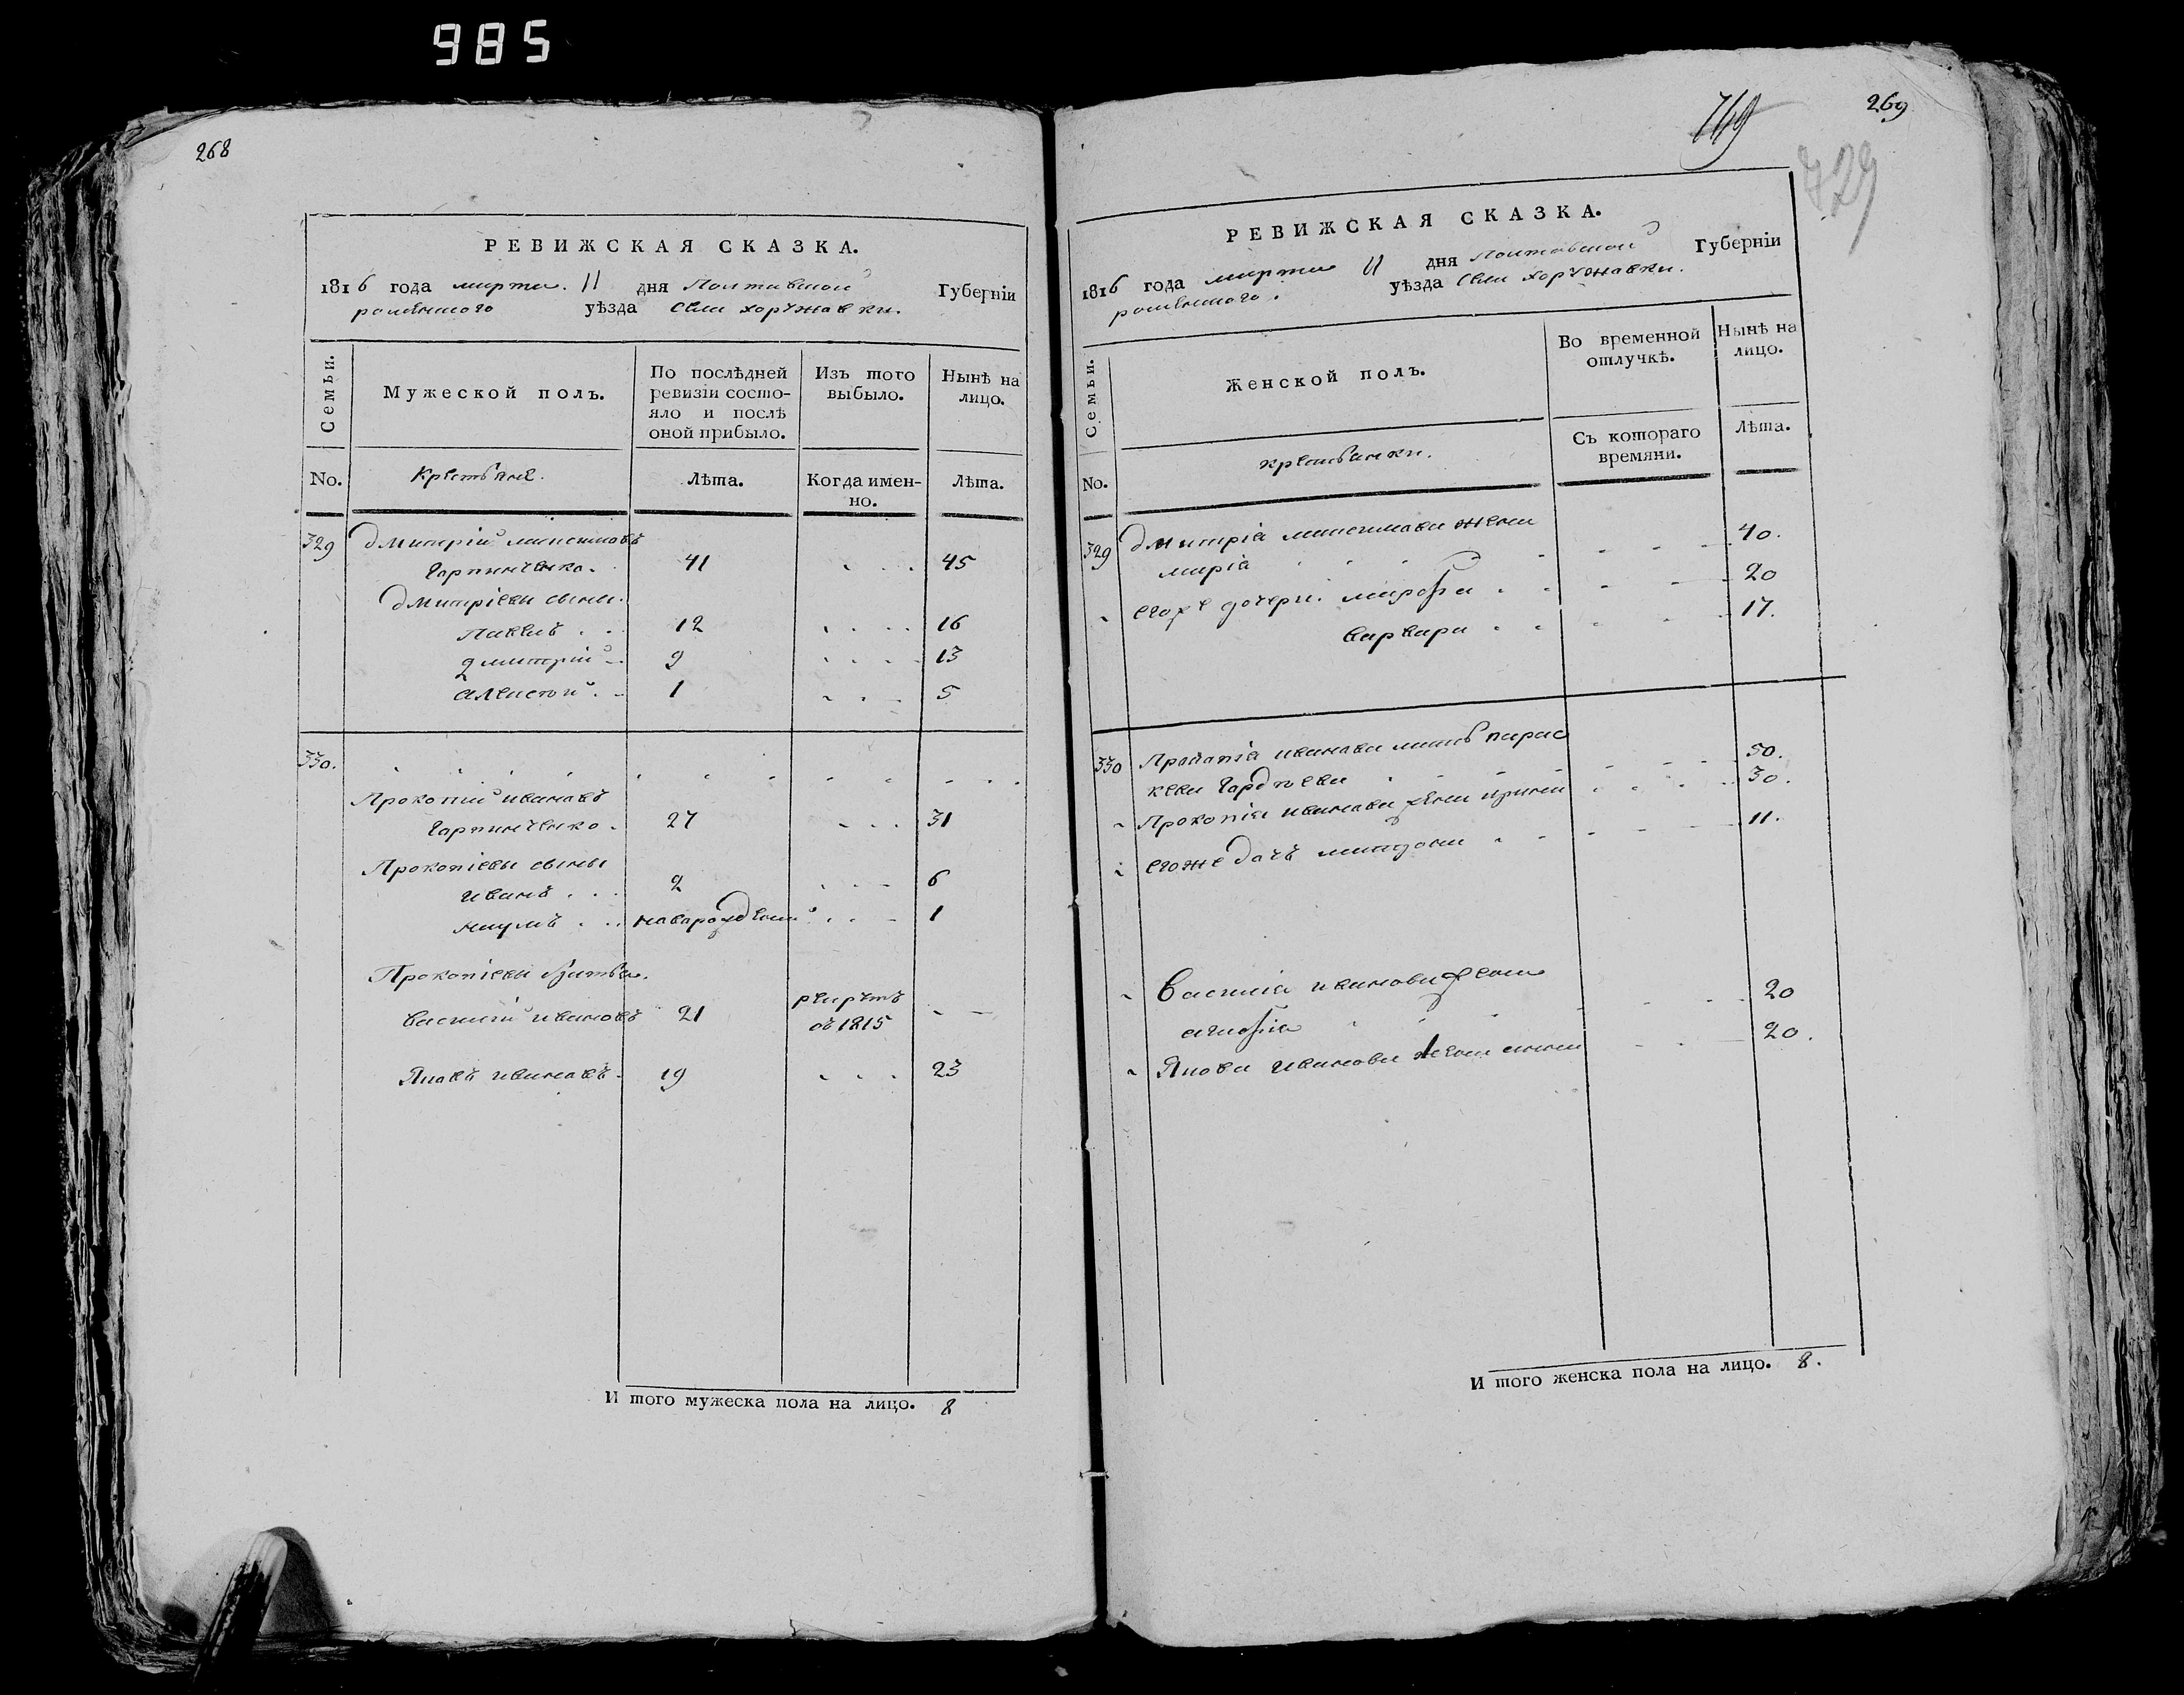 985
268
РЕВИЖСКАЯ СКАЗКА.
1816 года марта 11 дня Полтавской Губерніи
роменского уѣзда Села хоружавки.
Семьи.
Мужеской полъ.
По послѣдней ревизіи состо-
яло и послѣ
оной прибыло.
Изъ того выбыло.
Нынѣ на лицо.
No.
Крестьяне.
Лѣта.
Когда имен-
но.
Лѣта.
329 дмитрій максимовъ
Гарпинченко. 41 . . . 45
дмитріевы сыны.
Павелъ . . 12 . . . . 16
дмитрій . . 9 . . . . 13
алексѣй . . 1 . . . 5
330. . . . . . . . . . . . .
Прокопий ивановъ
Гарпинченко. 27 . . . 31
Прокопіевы сыны
иванъ . . . 2 . . . 6
наумъ . . . новорожденный . . . 1
Прокопіевы братья.
василій ивановъ 21 рекрутъ
въ 1815 - -
Яковъ ивановъ. 19 . . . 23
И того мужеска пола на лицо. 8
769
269
729
РЕВИЖСКАЯ СКАЗКА.
1816 года марта 11 дня Полтавской Губерніи
роменского. уѣзда Села хоружавки.
Семьи.
Женской полъ.
Во временной
отлучкѣ.
Нынѣ на
лицо.
No.
крестьянки.
Съ котораго
времяни.
Лѣта.
329 дмитріа максимова жена
маріа 40.
егоже дочери. марфа . . 20
варвара . . 17.
330 Прокопіа иванова мать парас
кева 50.
Прокопіа иванова жена ирина 30.
егоже дочъ 11.
Василіа иванова жена
агафіа 20
Якова иванова жена анна 20.
И того женска пола на лицо. 8.